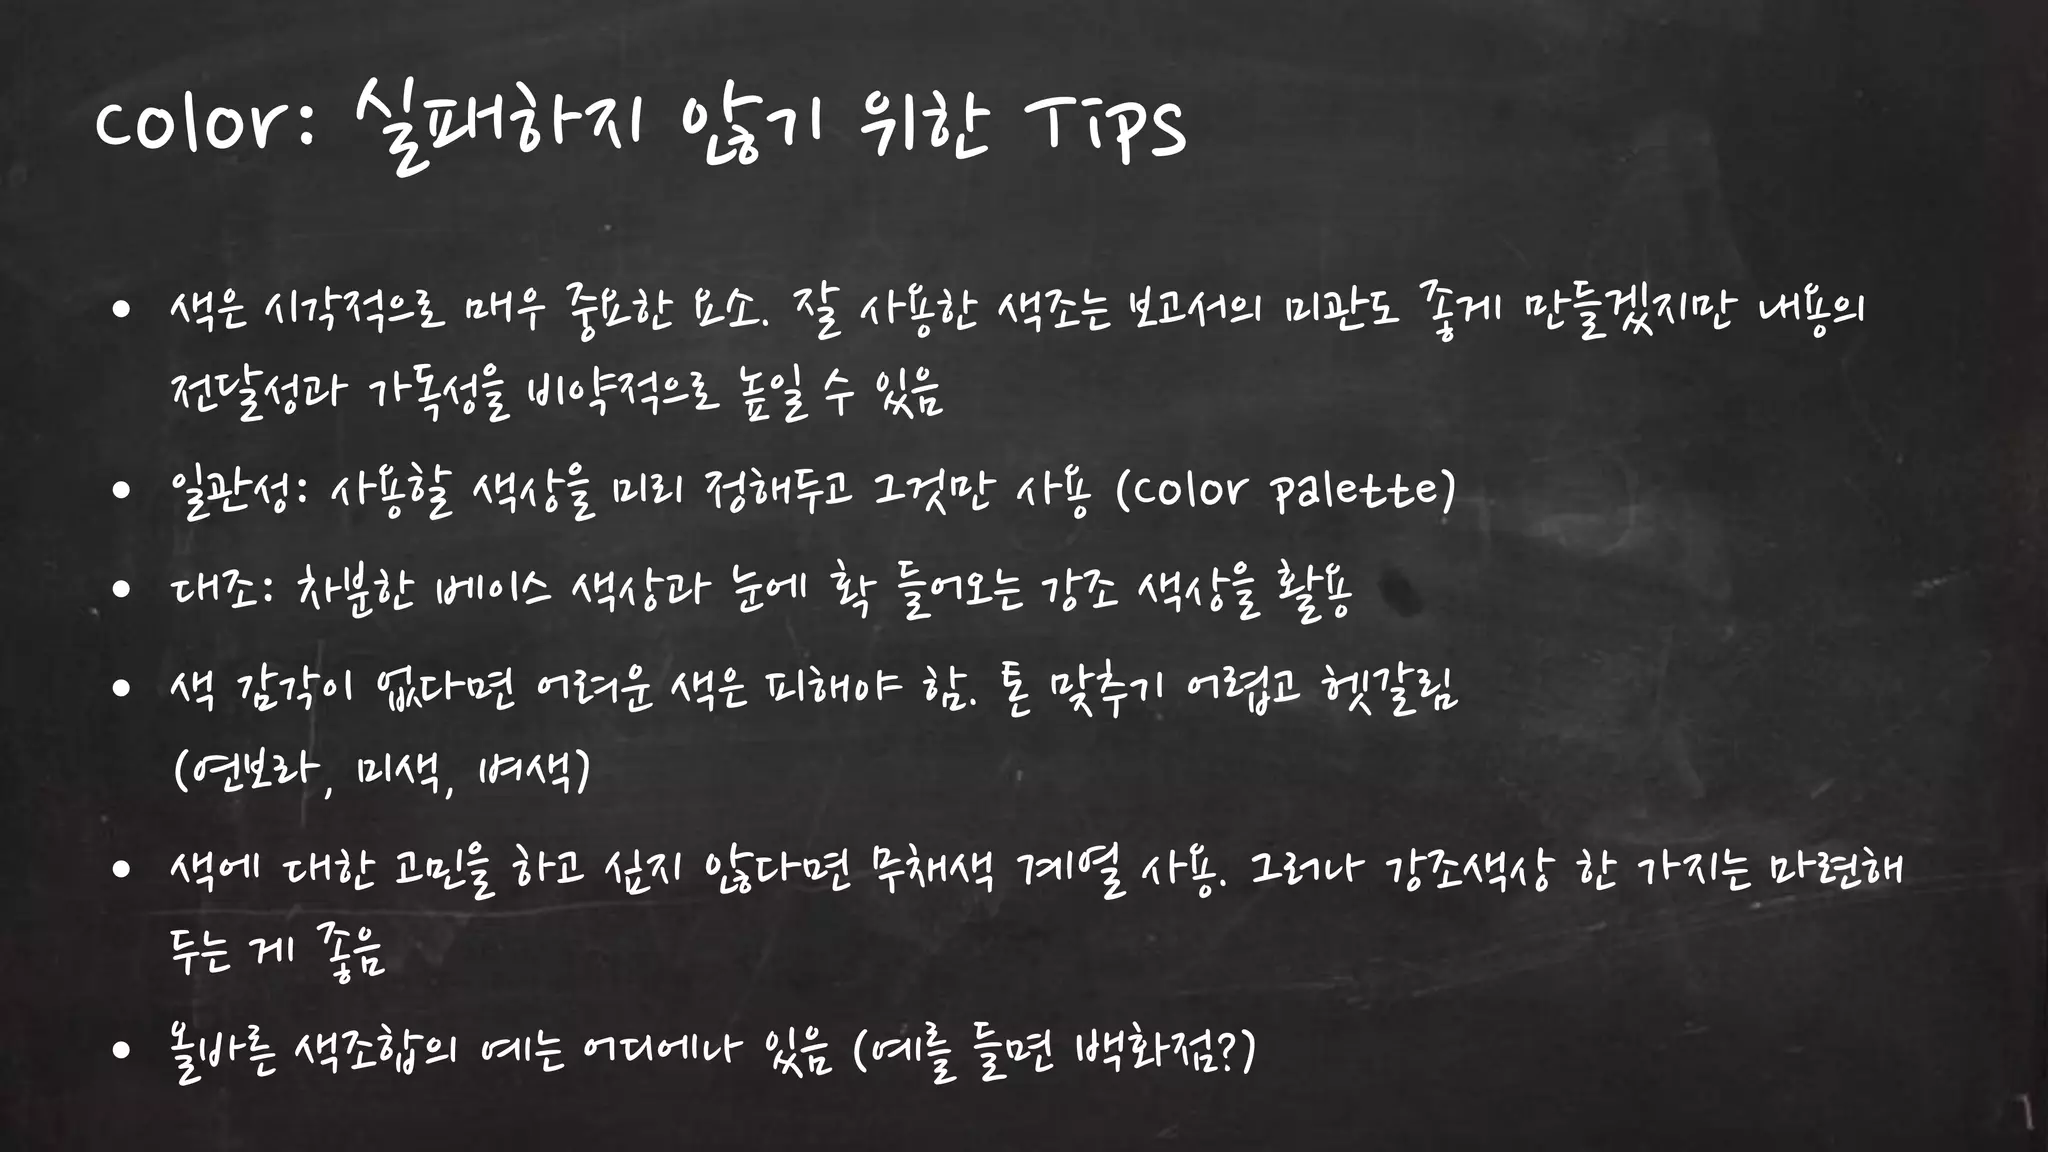 color: 실패하지 않기 위한 Tips
• 색은 시각적으로 매우 중요한 요소. 잘 사용한 색조는 보고서의 미관도 좋게 만들겠지만 내용의
전달성과 가독성을 비약적으로 높일 수 있음
• 일관성: 사용할 색상을 미리 정해두고 그것만 사용 (color palette)
• 대조: 차분한 베이스 색상과 눈에 확 들어오는 강조 색상을 활용
• 색 감각이 없다면 어려운 색은 피해야 함. 톤 맞추기 어렵고 헷갈림
(연보라, 미색, 벼색)
• 색에 대한 고민을 하고 싶지 않다면 무채색 계열 사용. 그러나 강조색상 한 가지는 마련해
두는 게 좋음
• 올바른 색조합의 예는 어디에나 있음 (예를 들면 백화점?)